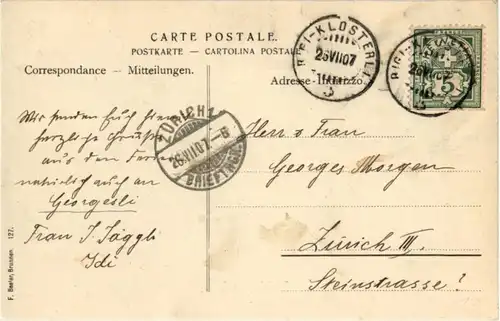 CARTE POSTALE.
POSTKARTE — CARTOLINA POSTALE
Correspondance — Mitteilungen.
Adresse
RIGI-KLÖSTERLI
26VII07
5
ZÜRICH 1
26.VII.07. - 6
BRIEFTRÄG.
Wir senden Euch
herzliche Grüsse
aus den Ferien
natürlich auch an
Georgesli
Frau J. Jäggli
Idi
Herr & Frau
Georges Morgen
Zürich III.
Steinstrasse?
F. Beeler, Brunnen. 127.